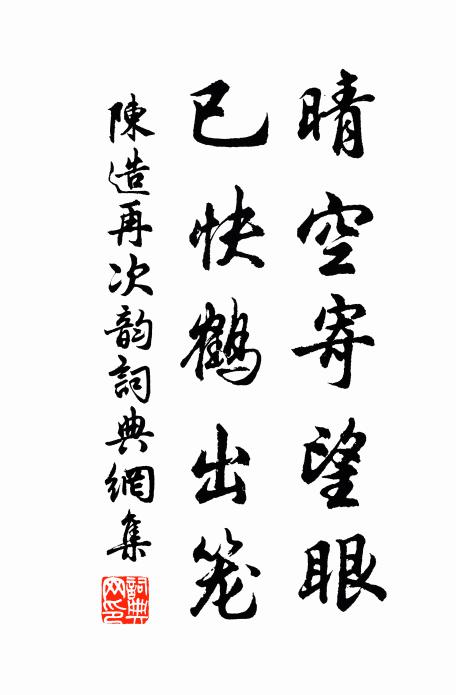 晴空寄望眼
已快鹤出笼
陳造再次韵詞典網集
詞典网印